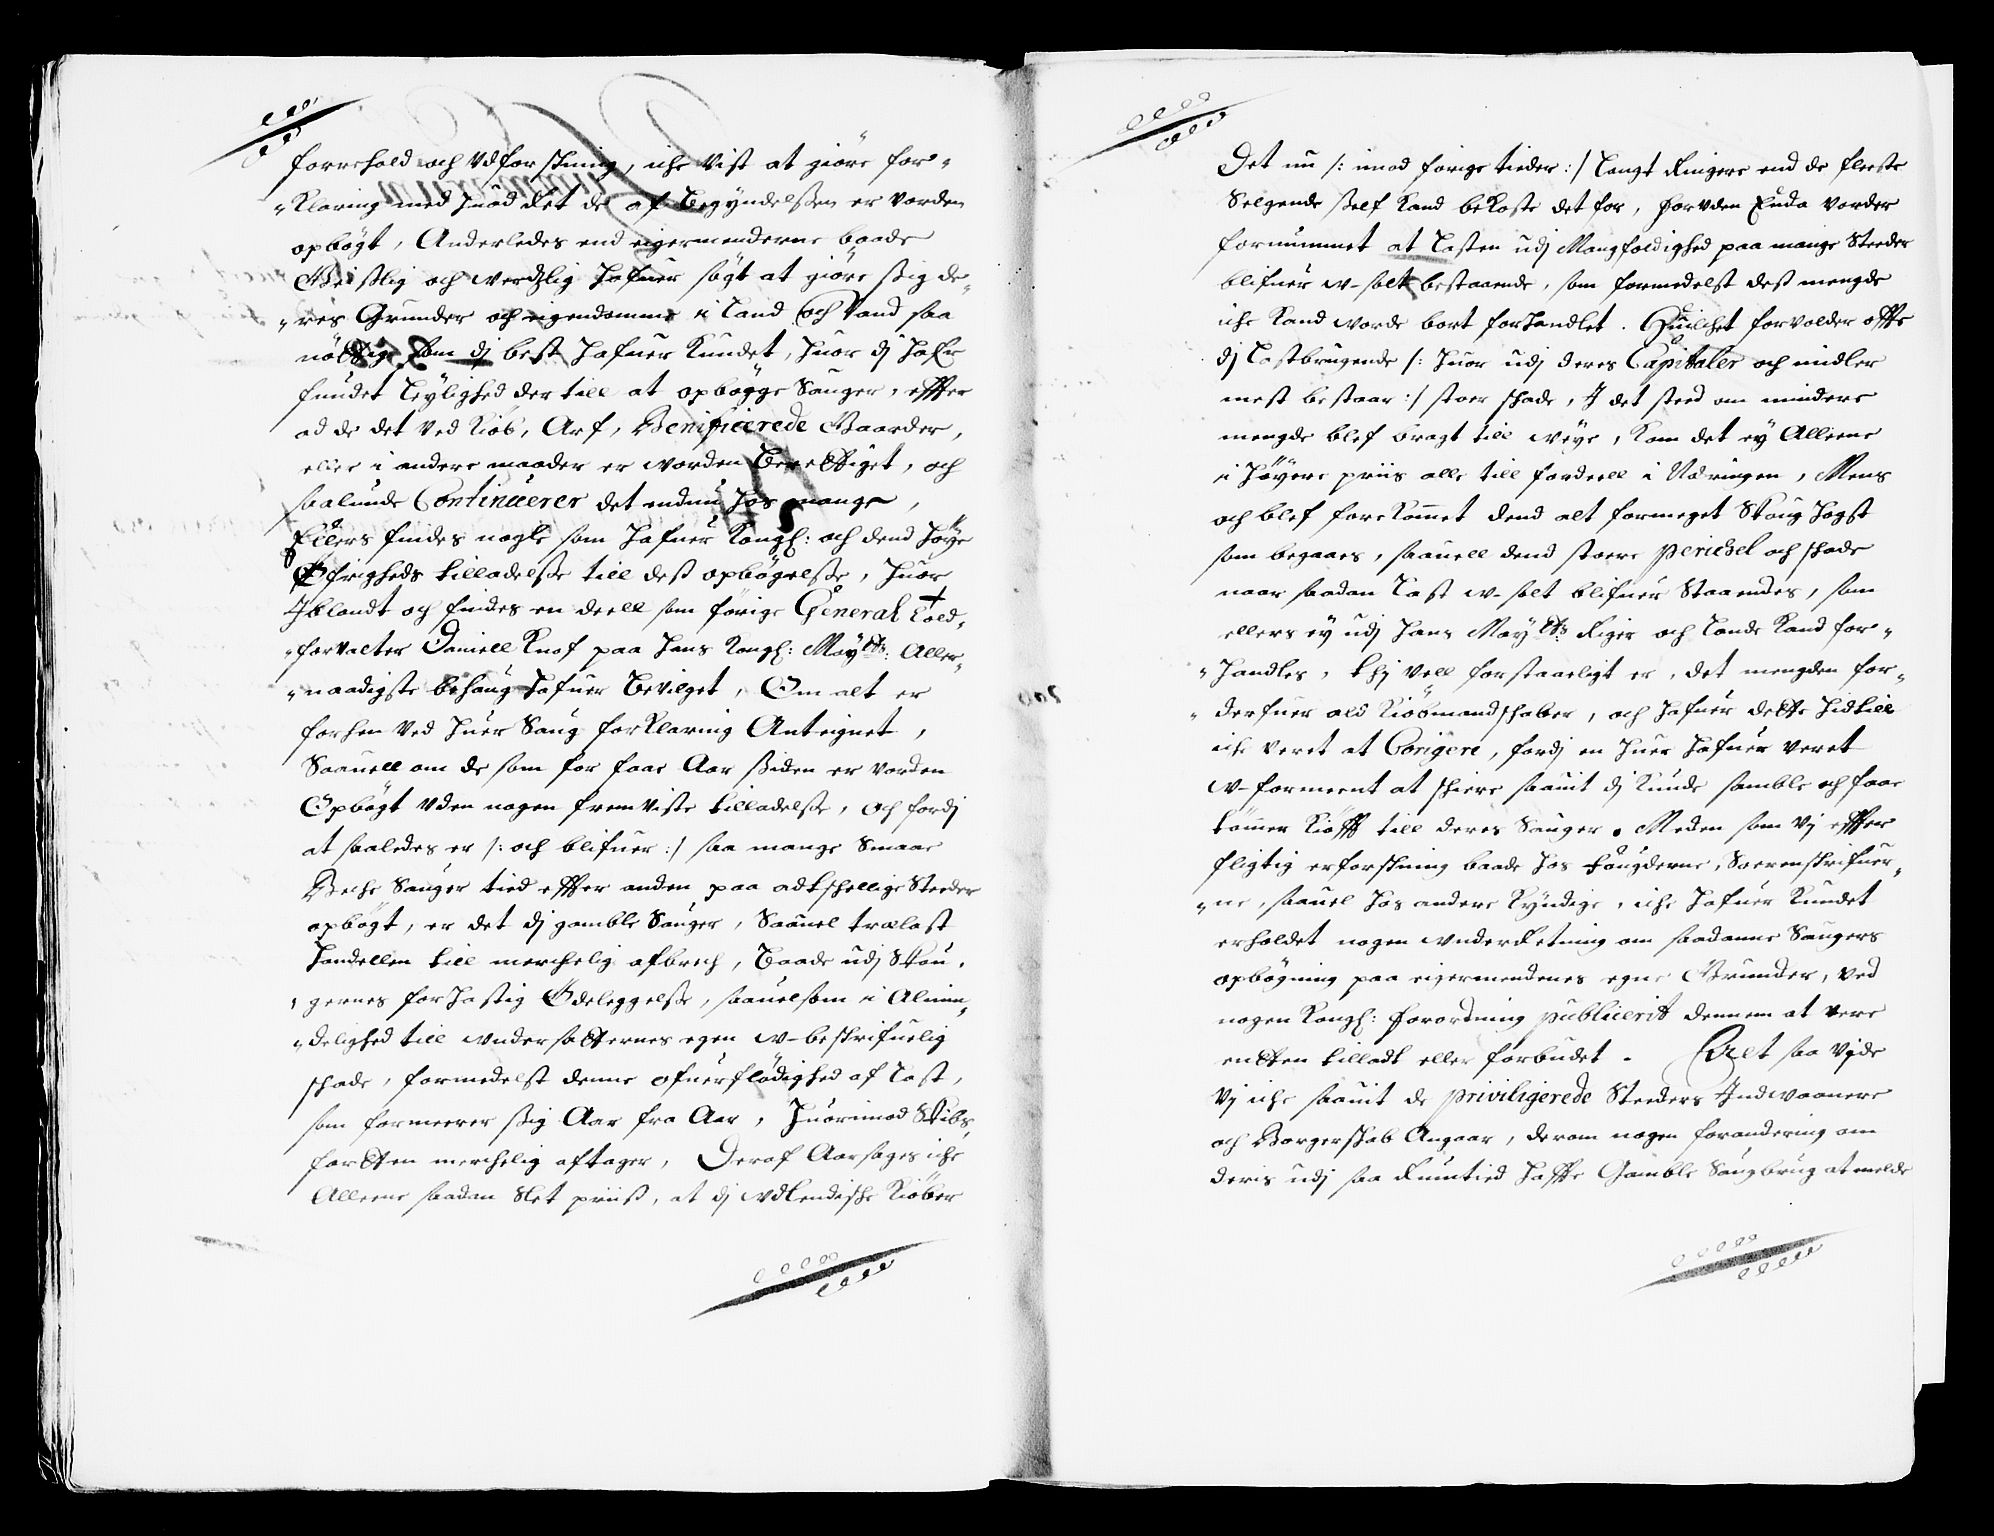 forrehold och Vdforskning, iche Vist at giöre for-
-Klaring med huad Ret de af Begyndelßen er vorden
opbögt, Anderledes end eigermenderne baade
Geistlig och werdzlig hafuer sögt at giöre sig de-
-res Grunder och eigendomme i Land och Vand saa
nöttig som dj best hafuer Kundet, huor dj hafr
fundet Leylighed der till at opbögge Sauger, effter
ad de det ved Kiöb, Arf, Benificerede Gaarder,
eller i andere maader er worden Berettiget, och
saalunde Continuerer det endnu hos mange,
Ellers findes nogle som hafuer Kongl: och dend höye
Öfrigheds tilladelße till dest opbögelße, huor
Iblandt och findes en deell som forige General Told-
-forvalter Daniell Knof paa hans Kongl: Maytts: Aller-
-naadigste behaug hafuer Bevilget, Om alt er
forhen Ved huer Saug forklaring Anteignet,
Saauell om de som for faae Aar siden er vorden
Opbögt Vden nogen fremviste tilladelße, Och fordj
at saaledes er /: och blifuer :/ saa mange Smaae
Beche Sauger tied effter anden paa adtschellige Steeder
opbögt, er det dj gamble Sauger, Saauel trælast
handellen till merchelig afbrech, Baade udj Skou-
-gernes forhastig Ödeleggelße, saauelsom i Almin-
-delighed till vndersatternes egen w-beskrifuelig
skade, formedelst denne ofuerflödighed af Last,
som formeerer sig Aar fra Aar, huorimod Skibs
farten merchelig aftager, Deraf Aarsages iche
Alleene saadan Slet priiß, at dj vdlendische Kiöber
Det nu /: imod forige tieder :/ langt Ringere end de fleeste
Selgende self Kand bekoste det for, foruden Enda vorder
fornummet at Lasten udj Mangfoldighed paa mange Steeder
blifuer w-solt bestaaende, som formedelst dest mengde
iche Kand worde bort forhandlet. Huilchet forvolder offte
dj Lastbrugende /: huor udj deres Capitaler och midler
mest bestaar :/ stoer schade, I det sted om mindere
mengde blef bragt till weye, kom det ey Alleene
i höyere priis alle till fordeell i Næringen, Mens
och blef forekommet dend alt formeget Skoug hogst
som begaaes, saauell dend stoere perichel och schade
naar saadan Last w-solt blifuer Staaendes, som
ellers ey udj hans Maytts Riger och Lande Kand for-
-handles, thj vell forstaaeligt er, det mengden for-
-derfuer ald Kiöbmandschaber, och hafuer dette hidtill
iche veret at Corigere, fordj en huer hafuer veret
w-formeent at schiere saauit dj Kunde samble och faae
tömmer Kiöfft till deres Sauger. Meden som Vj effter
fligtig erforskning baade hos fougderne, Soerenskrifuer-
-ne, saauel hos andere Kyndige, iche hafuer Kundet
erholdet nogen vnderRetning om saadanne Saugers
opbögning paa eigermendenes egne Grunder, ved
nogen Kongl: forordning publicerit dennem at vere
entten tilladt eller forbudet. Ey saa Vide
Vj iche saauit de priviligerede Steeders Indwaanere
och Borgerskab Angaar, derom nogen forandering om
deris udj saa Rumtied hafte Gamble Saugbrug at melde